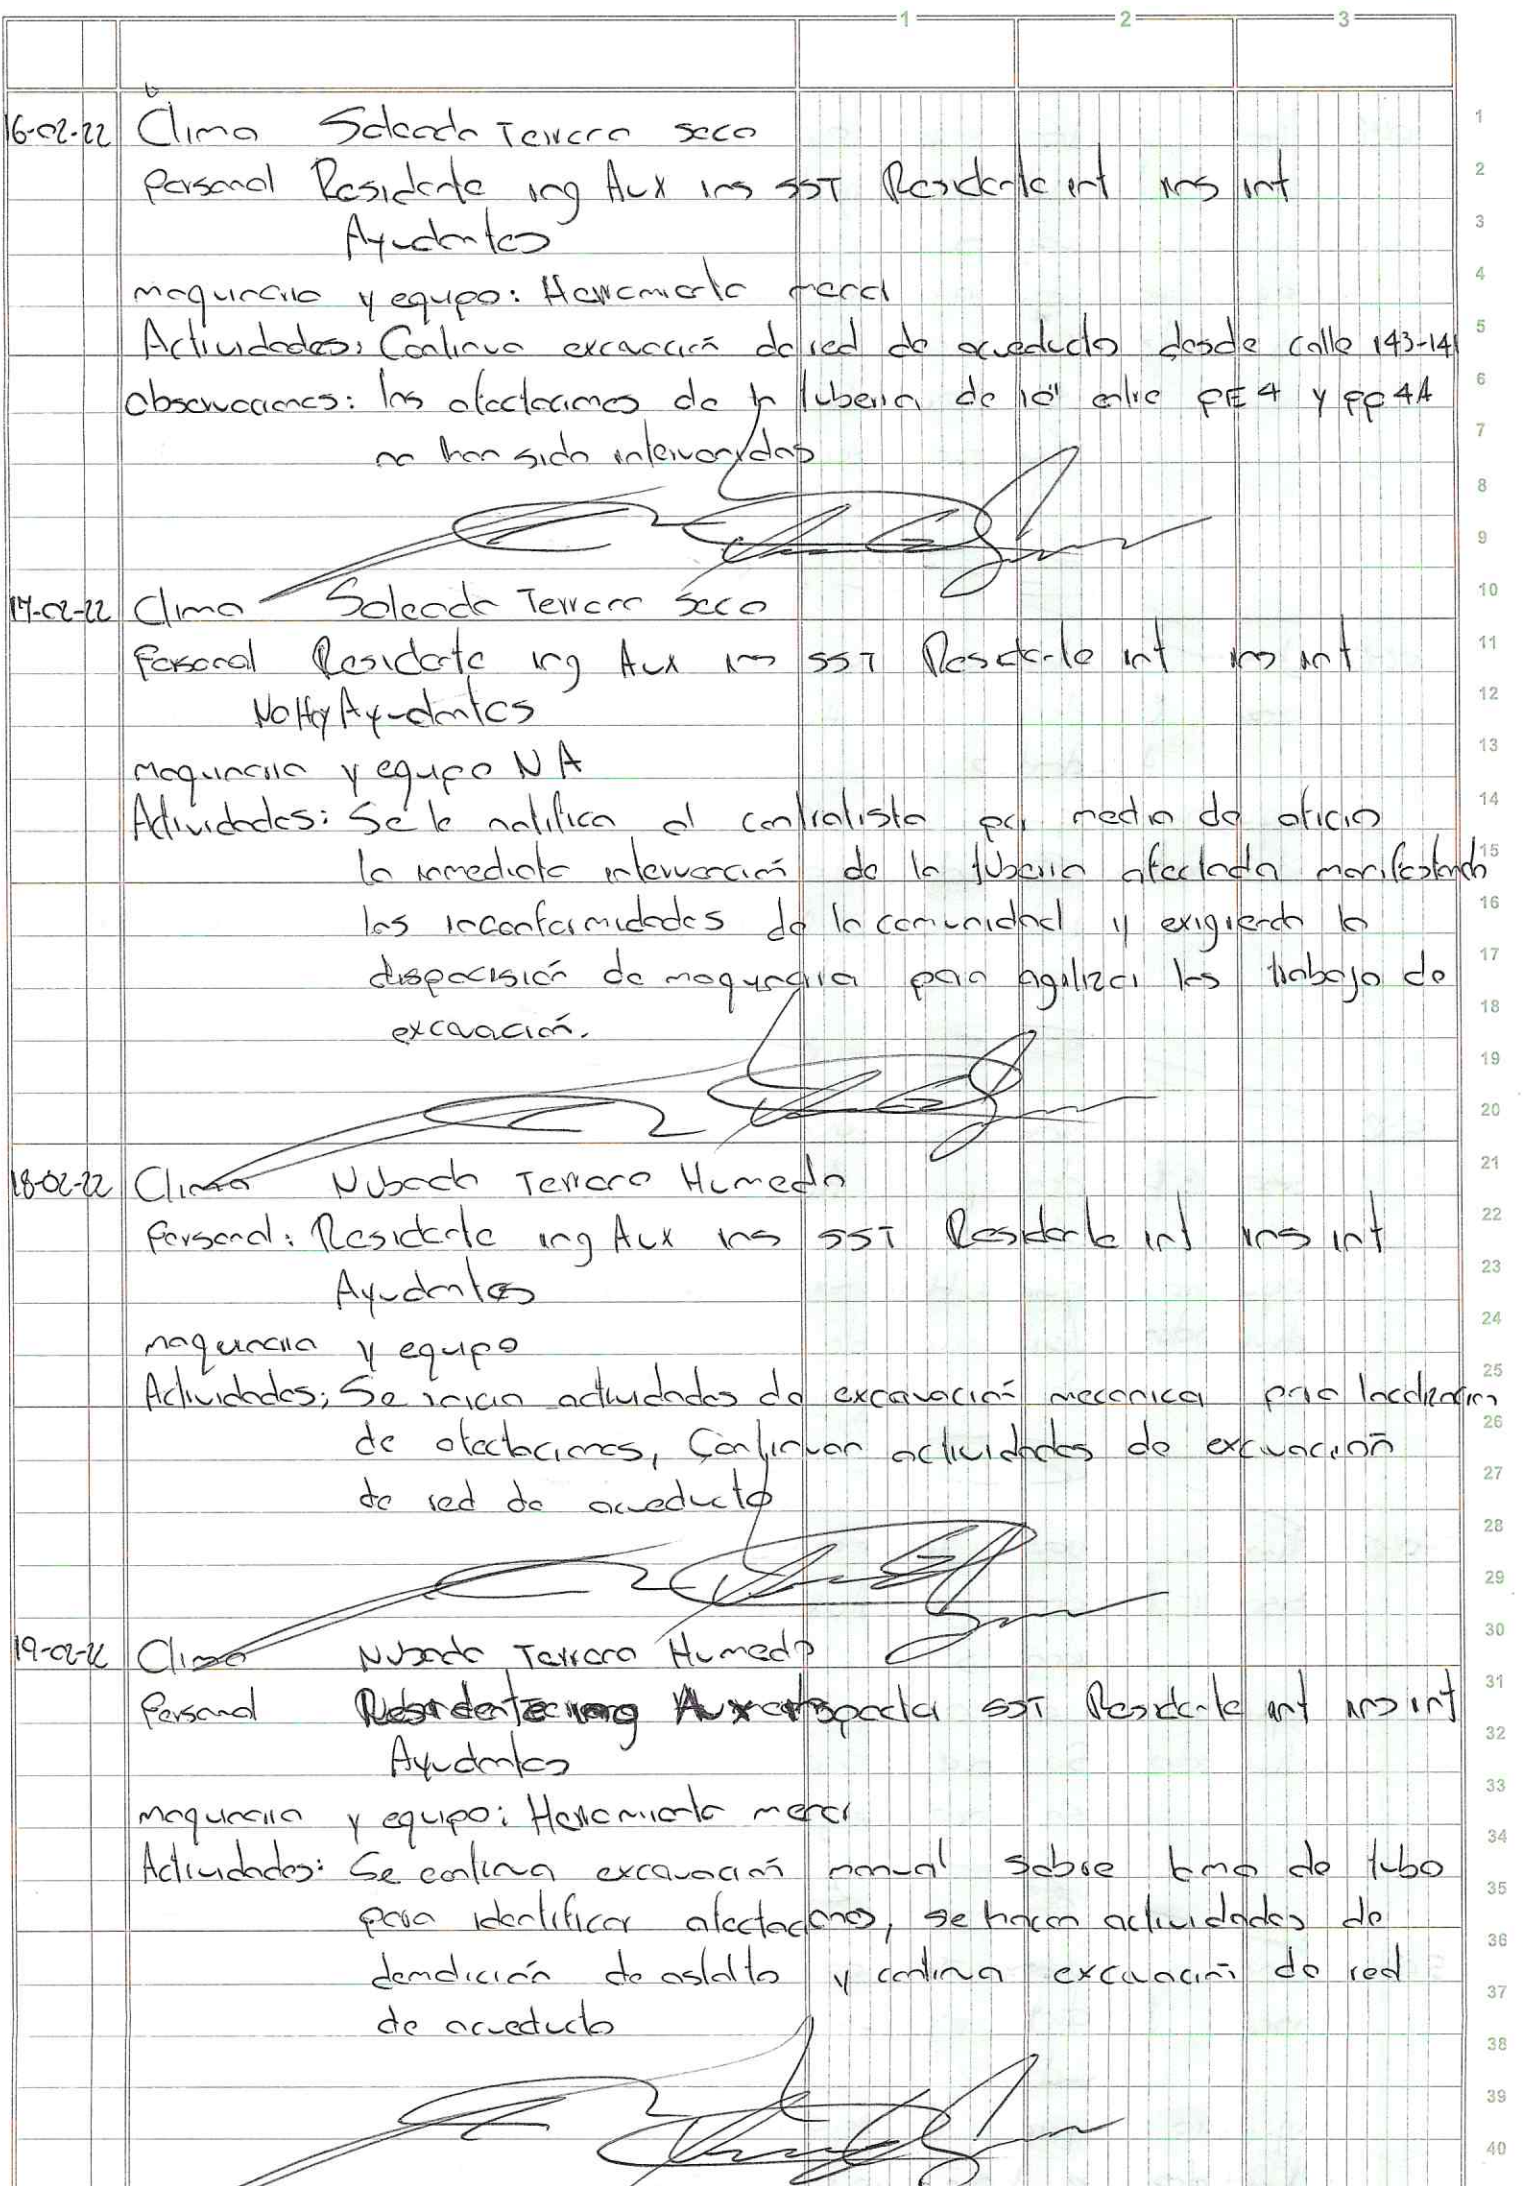 1 2 3
16-02-22 Clima Soleado Terreno seco 1
Personal Residente ing Aux ins SST Residente int ins int 2
Ayudantes 3
maquinaria y equipo: Herramienta menor 4
Actividades: Continua excavación de red de acueducto desde calle 143-141 5
Observaciones: las afectaciones de la tuberia de 10" entre PE4 y PP4A 6
no han sido intervenidas 7
8
9
17-02-22 Clima Soleado Terreno Seco 10
Personal Residente ing Aux ins SST Residente int ins int 11
No Hay Ayudantes 12
Maquinaria y equipo NA 13
Actividades: Se le notifica al contratista por medio de oficio 14
la inmediata intervención de la tuberia afectada manifestando 15
las inconformidades de la comunidad y exigiendo la 16
disposición de maquinaria para agilizar los trabajo de 17
excavación. 18
19
20
21
18-02-22 Clima Nubado Terreno Humedo
Personal: Residente ing Aux ins SST Residente int ins int 22
Ayudantes 23
maquinaria y equipo 24
Actividades; Se inician actividades de excavación mecanica para localización 25
de afectaciones, Continuan actividades de excavación 26
de red de acueducto 27
28
29
30
19-02-22 Clima Nubado Terreno Humedo
Personal Residente ing Aux inspector SST Residente int ins int 31
Ayudantes 32
maquinaria y equipo: Herramienta menor 33
Actividades: Se continua excavación manual sobre lomo de tubo 34
para identificar afectaciones, se hacen actividades de 35
demolición de asfalto y continua excavación de red 36
de acueducto 37
38
39
40